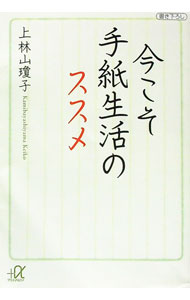 書き下ろし
今こそ
手紙生活の
ススメ
上林山瓊子
Kamibayashiyama Keiko
+α